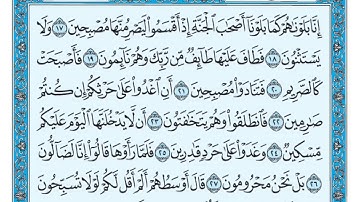 إِنَّا بَلَوْنَٰهُمْ كَمَا بَلَوْنَآ أَصْحَٰبَ ٱلْجَنَّةِ إِذْ أَقْسَمُوا۟ لَيَصْرِمُنَّهَا مُصْبِحِينَ ١٧ وَلَا
يَسْتَثْنُونَ ١٨ فَطَافَ عَلَيْهَا طَآئِفٌ مِّن رَّبِّكَ وَهُمْ نَآئِمُونَ ١٩ فَأَصْبَحَتْ
كَٱلصَّرِيمِ ٢٠ فَتَنَادَوْا۟ مُصْبِحِينَ ٢١ أَنِ ٱغْدُوا۟ عَلَىٰ حَرْثِكُمْ إِن كُنتُمْ
صَٰرِمِينَ ٢٢ فَٱنطَلَقُوا۟ وَهُمْ يَتَخَٰفَتُونَ ٢٣ أَن لَّا يَدْخُلَنَّهَا ٱلْيَوْمَ عَلَيْكُم
مِّسْكِينٌ ٢٤ وَغَدَوْا۟ عَلَىٰ حَرْدٍ قَٰدِرِينَ ٢٥ فَلَمَّا رَأَوْهَا قَالُوٓا۟ إِنَّا لَضَآلُّونَ
٢٦ بَلْ نَحْنُ مَحْرُومُونَ ٢٧ قَالَ أَوْسَطُهُمْ أَلَمْ أَقُل لَّكُمْ لَوْلَا تُسَبِّحُونَ